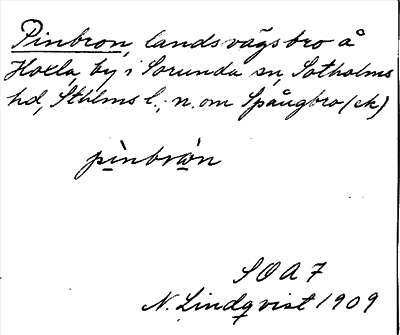 Pinbron, landsvägsbro å
Hoxla, by i Sorunda sn, Sotholms
hd, Sthlms l.; n. om Spångbro (ek)
pìnbrωn
SOA 7
N. Lindqvist 1909